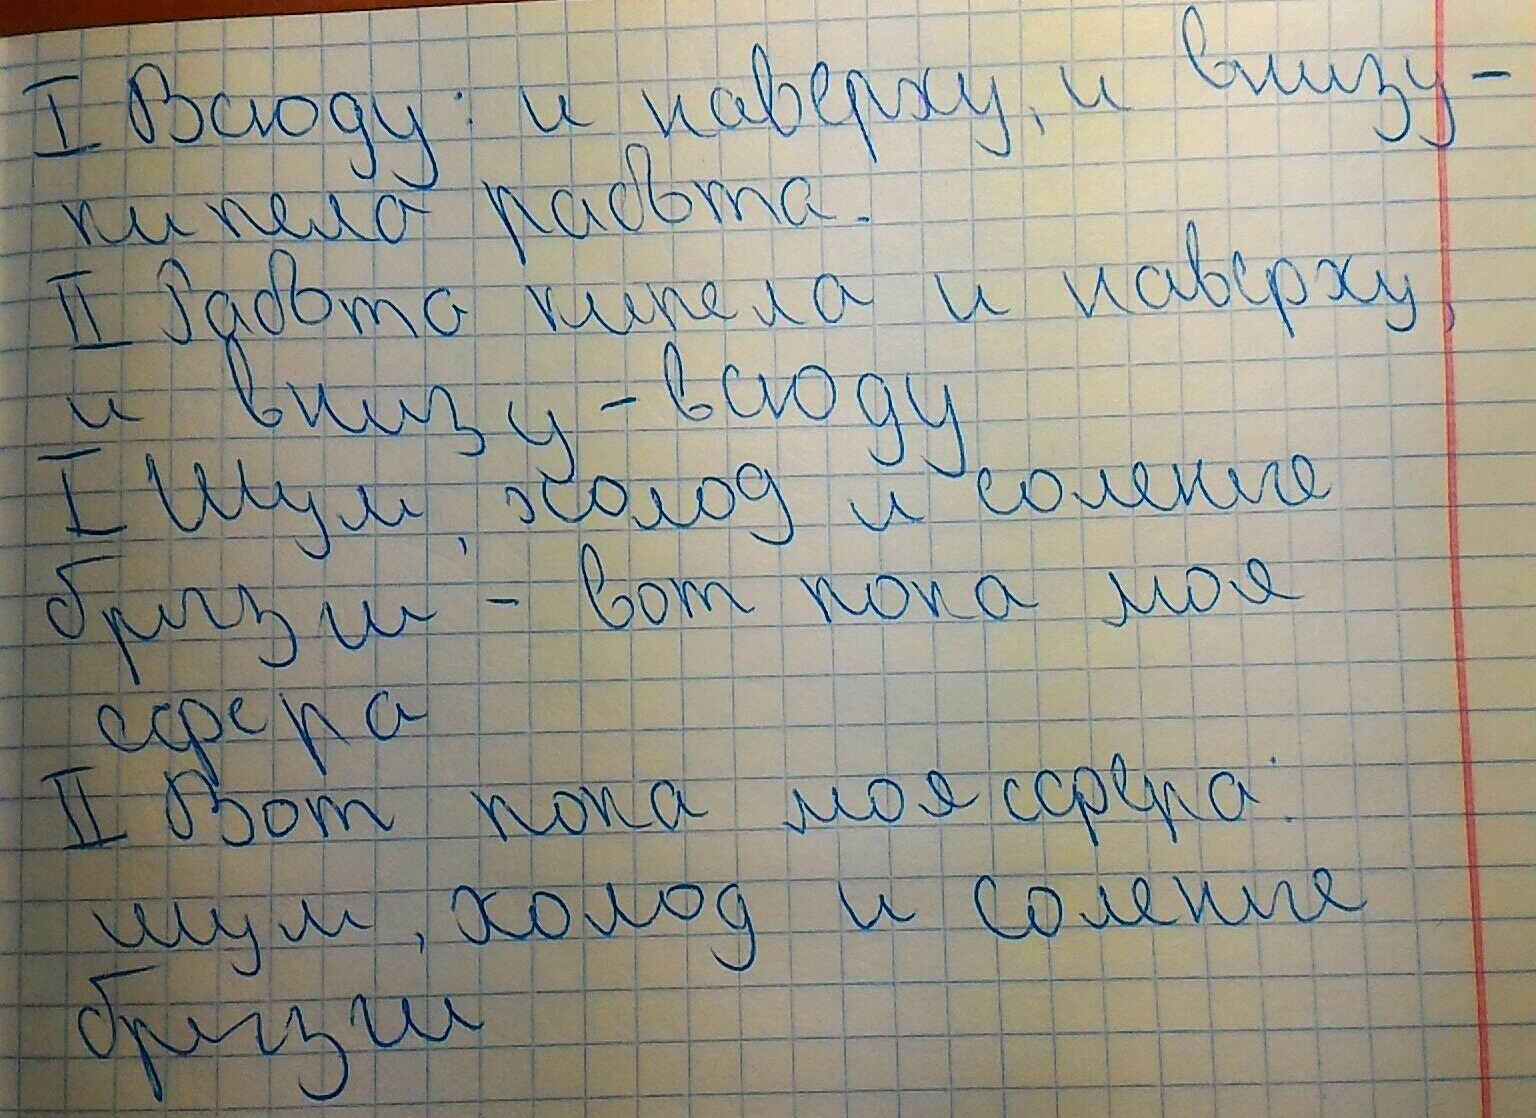 I Всюду: и наверху, и внизу -
кипела работа.
II Работа кипела и наверху,
и внизу - всюду
I Шум, холод и соленые
брызги - вот пока моя
сфера
II Вот пока моя сфера:
шум, холод и соленые
брызги